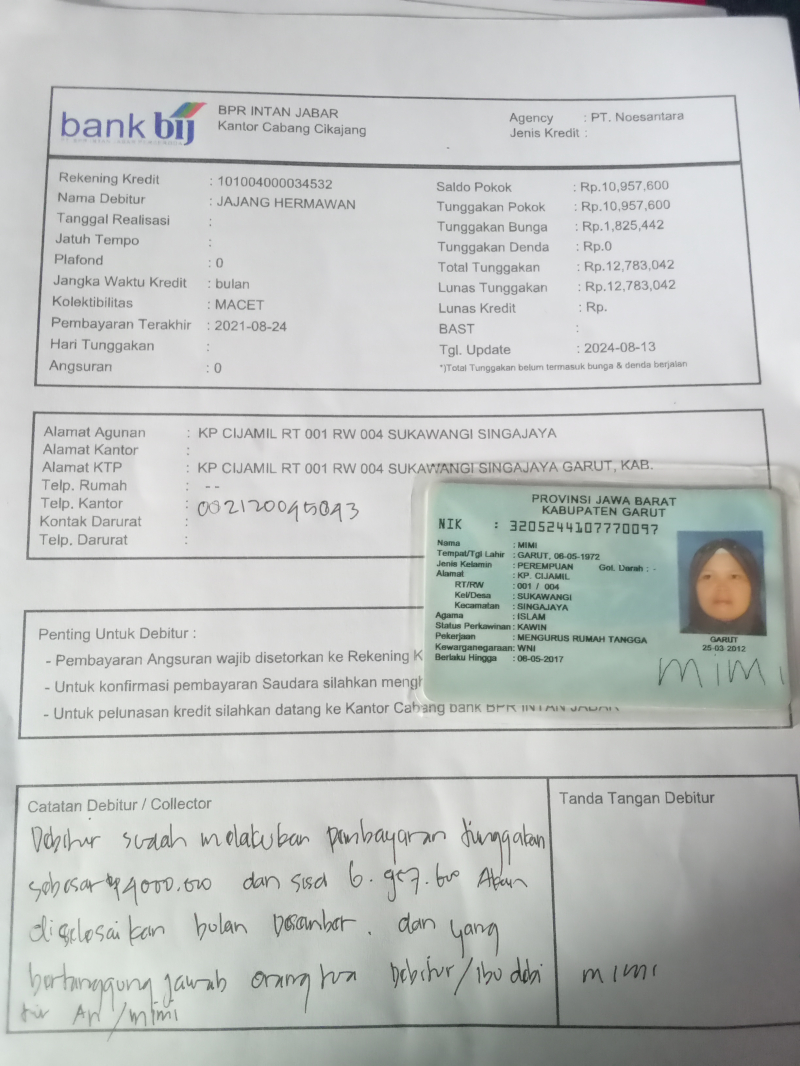 bank bij
BPR INTAN JABAR
Kantor Cabang Cikajang
Agency : PT. Noesantara
Jenis Kredit :
Rekening Kredit : 101004000034532
Nama Debitur : JAJANG HERMAWAN
Tanggal Realisasi :
Jatuh Tempo :
Plafond : 0
Jangka Waktu Kredit : bulan
Kolektibilitas : MACET
Pembayaran Terakhir : 2021-08-24
Hari Tunggakan :
Angsuran : 0
Saldo Pokok : Rp.10,957,600
Tunggakan Pokok : Rp.10,957,600
Tunggakan Bunga : Rp.1,825,442
Tunggakan Denda : Rp.0
Total Tunggakan : Rp.12,783,042
Lunas Tunggakan : Rp.12,783,042
Lunas Kredit : Rp.
BAST :
Tgl. Update : 2024-08-13
*)Total Tunggakan belum termasuk bunga & denda berjalan
Alamat Agunan : KP CIJAMIL RT 001 RW 004 SUKAWANGI SINGAJAYA
Alamat Kantor :
Alamat KTP : KP CIJAMIL RT 001 RW 004 SUKAWANGI SINGAJAYA GARUT, KAB.
Telp. Rumah : --
Telp. Kantor :
Kontak Darurat :
Telp. Darurat :
PROVINSI JAWA BARAT
KABUPATEN GARUT
NIK : 3205244107770097
Nama : MIMI
Tempat/Tgl Lahir : GARUT, 06-05-1972
Jenis Kelamin : PEREMPUAN Gol. Darah : -
Alamat : KP. CIJAMIL
RT/RW : 001 / 004
Kel/Desa : SUKAWANGI
Kecamatan : SINGAJAYA
Agama : ISLAM
Status Perkawinan : KAWIN
Pekerjaan : MENGURUS RUMAH TANGGA
Kewarganegaraan: WNI
Berlaku Hingga : 06-05-2017
GARUT
25-03-2012
MIMI
Penting Untuk Debitur :
- Pembayaran Angsuran wajib disetorkan ke Rekening K
- Untuk konfirmasi pembayaran Saudara silahkan mengh
- Untuk pelunasan kredit silahkan datang ke Kantor Cabang bank BPR INTAN JABAR
Catatan Debitur / Collector
Debitur sudah melakukan pembayaran tunggakan
sebesar Rp 4000.000 dan sisa 6.957.600 Akan
diselosaikan bulan Desember. dan yang
bertanggung jawab orang tua Debitur/ibu debi
tur An/mimi
Tanda Tangan Debitur
mimi